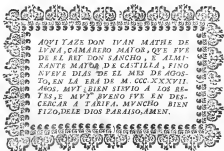 AQUI YAZE DON IVAN MATHE DE
LVNA, CAMARERO MAYOR, QUE FVE
DE EL REY DON SANCHO, E ALMI-
RANTE MAYOR DE CASTILLA, FINO
NUEVE DIAS DE EL MES DE AGOS-
TO, EN LA ERA DE M. CCC. XXXVII.
AÑOS, MUI BIEN SIRVIO A LOS RE-
YES, E MUI BUENO FVE EN DES-
CERCAR A TARIFA. MVNCHO BIEN
FIZO, DELE DIOS PARAISO, AMEN.